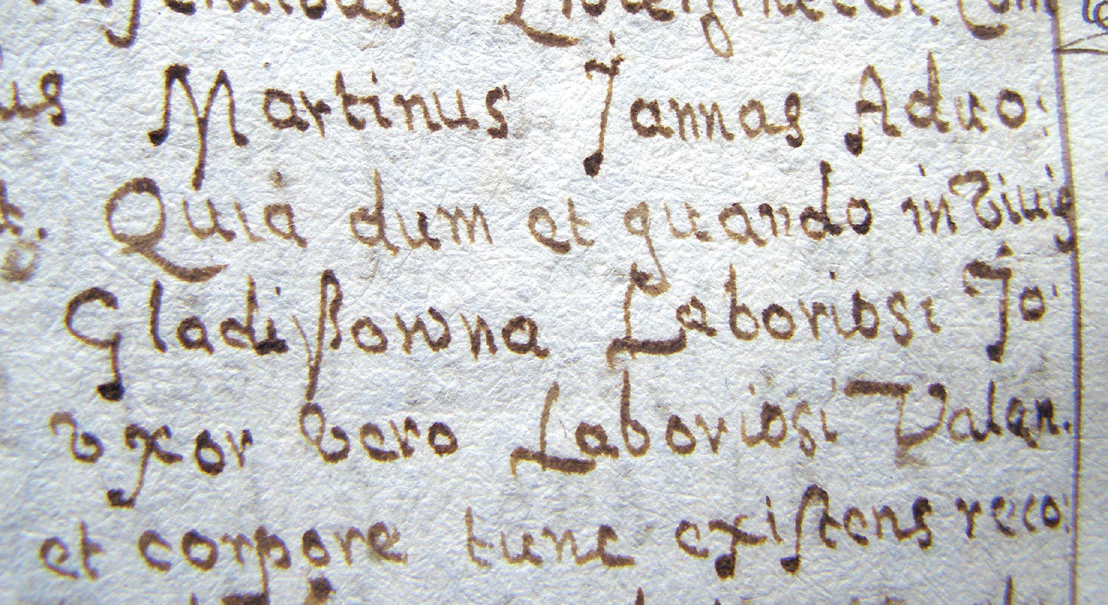 us Martinus Jannas Aduo:
Quia dum et quando in
Gladißowna Laboriosi Jo:
vxor vero Laboriosi Valan.
et corpore tunc existens reco: